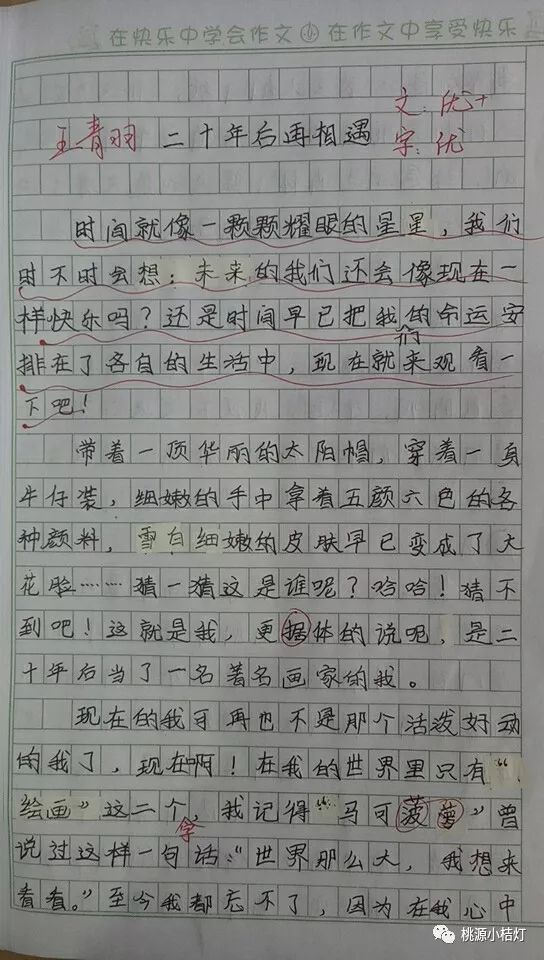 在快乐中学会作文 在作文中享受快乐
文：优+
王青羽 二十年后再相遇
字：优
时间就像一颗颗耀眼的星星，我们
时不时会想：未来的我们还会像现在一
样快乐吗？还是时间早已把我们的命运安
排在了各自的生活中，现在就来观看一
下吧！
带着一顶华丽的太阳帽，穿着一身
牛仔装，细嫩的手中拿着五颜六色的各
种颜料，雪白细嫩的皮肤早已变成了大
花脸……猜一猜这是谁呢？哈哈！猜不
到吧！这就是我，更据体的说呢，是二
十年后当了一名著名画家的我。
现在的我可再也不是那个活泼好动
的我了，现在啊！在我的世界里只有“
绘画”这二个字，我记得“马可菠萝”曾
说过这样一句话：“世界那么大，我想来
看看。”至今我都忘不了，因为在我心中
桃源小桔灯